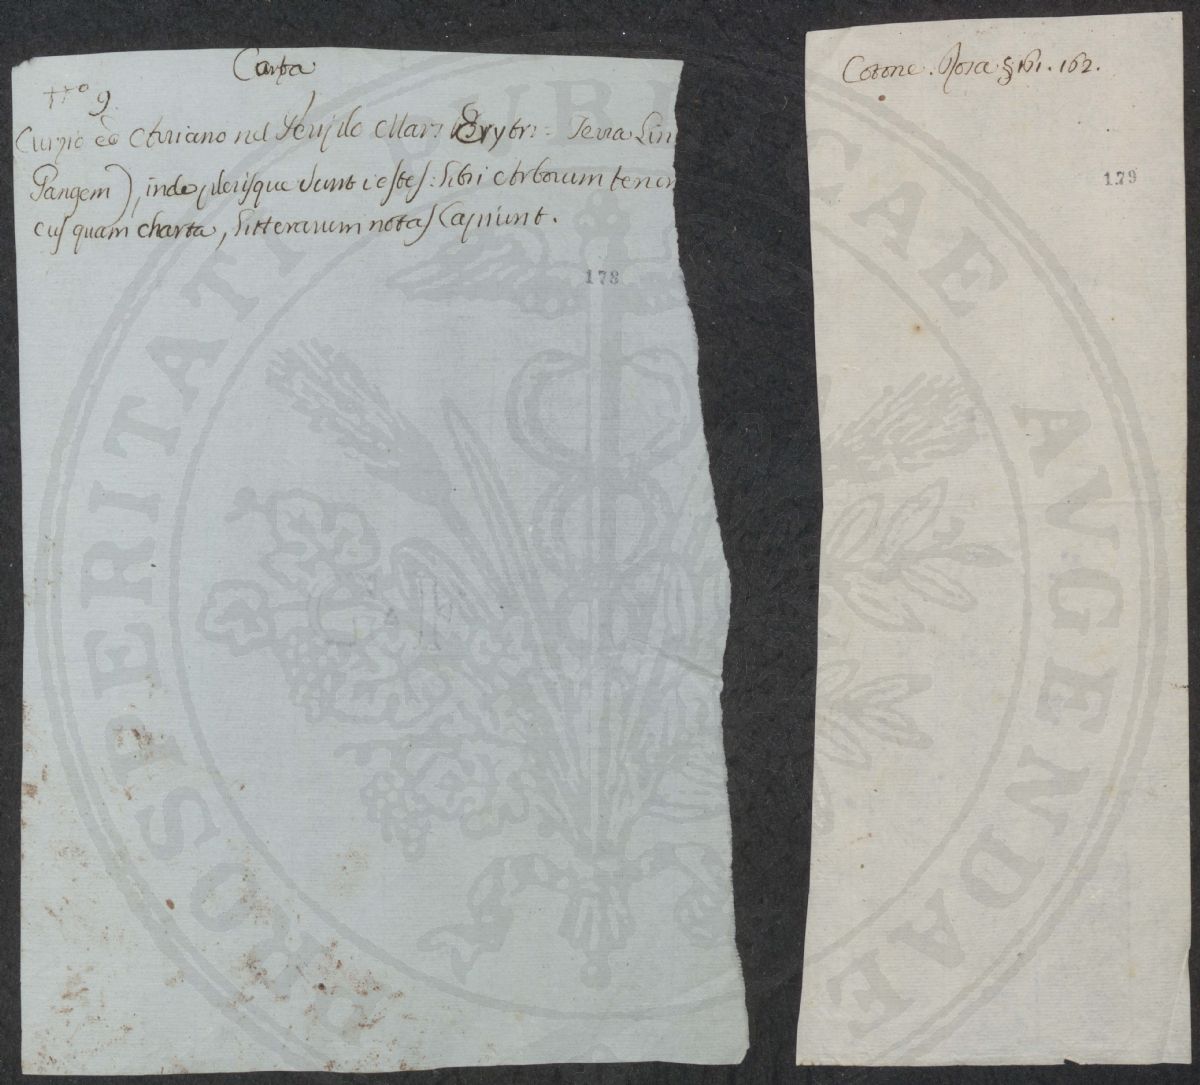 Carta
9.
Curzio ed Arriano nel Periplo Maris Erytri = Terra Lin
Pangem), inde plerisque sunt vestes: libri Arborum tener
cusquam charta, litterarum notas capiunt.
178
Cotone. Rosa § 161. 162.
179
PROSPERITATI PUBLICAE AVGENDAE